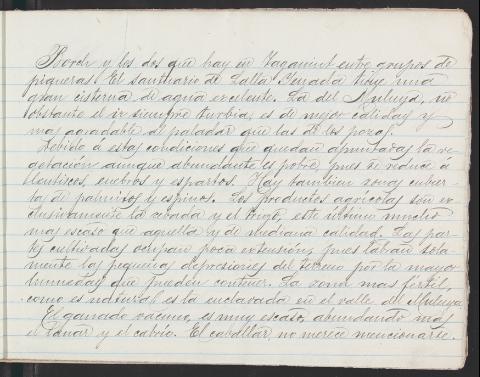 Borch y los dos que hay en Taganint entre grupos de
higueras. El santuario de Lalla Yenada tiene una
gran cisterna de agua excelente. La del Muluya, no
obstante el ir siempre turbia, es de mejor calidad y
mas agradable al paladar que las de los pozos.
Debido á estas condiciones que quedan apuntadas la ve-
getación aunque abundante es pobre, pues se reduce á
lentiscos, enebros y espartos. Hay tambien zonas cubier-
ta de palmitos y espinos. Los productos agricolas son ex-
clusivamente la cebada y el trigo, este ultimo mucho
mas escaso que aquella y de mediana calidad. Las par-
tes cultivadas ocupan poca extensión, pues labran sola
mente las pequeñas depresiones del terreno por la mayor
humedad que pueden contener. La zona mas fertil,
como es natural, es la enclavada en el valle del Muluya.
El ganado vacuno, es muy escaso, abundando mas
el lanar y el cabrio. El caballar, no merece mencionarse.